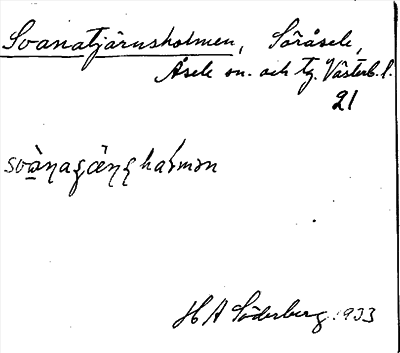 Svanatjärnsholmen, Söråsele,
Åsele sn. och tg. Västerb. l.
21
H A Söderberg 1933